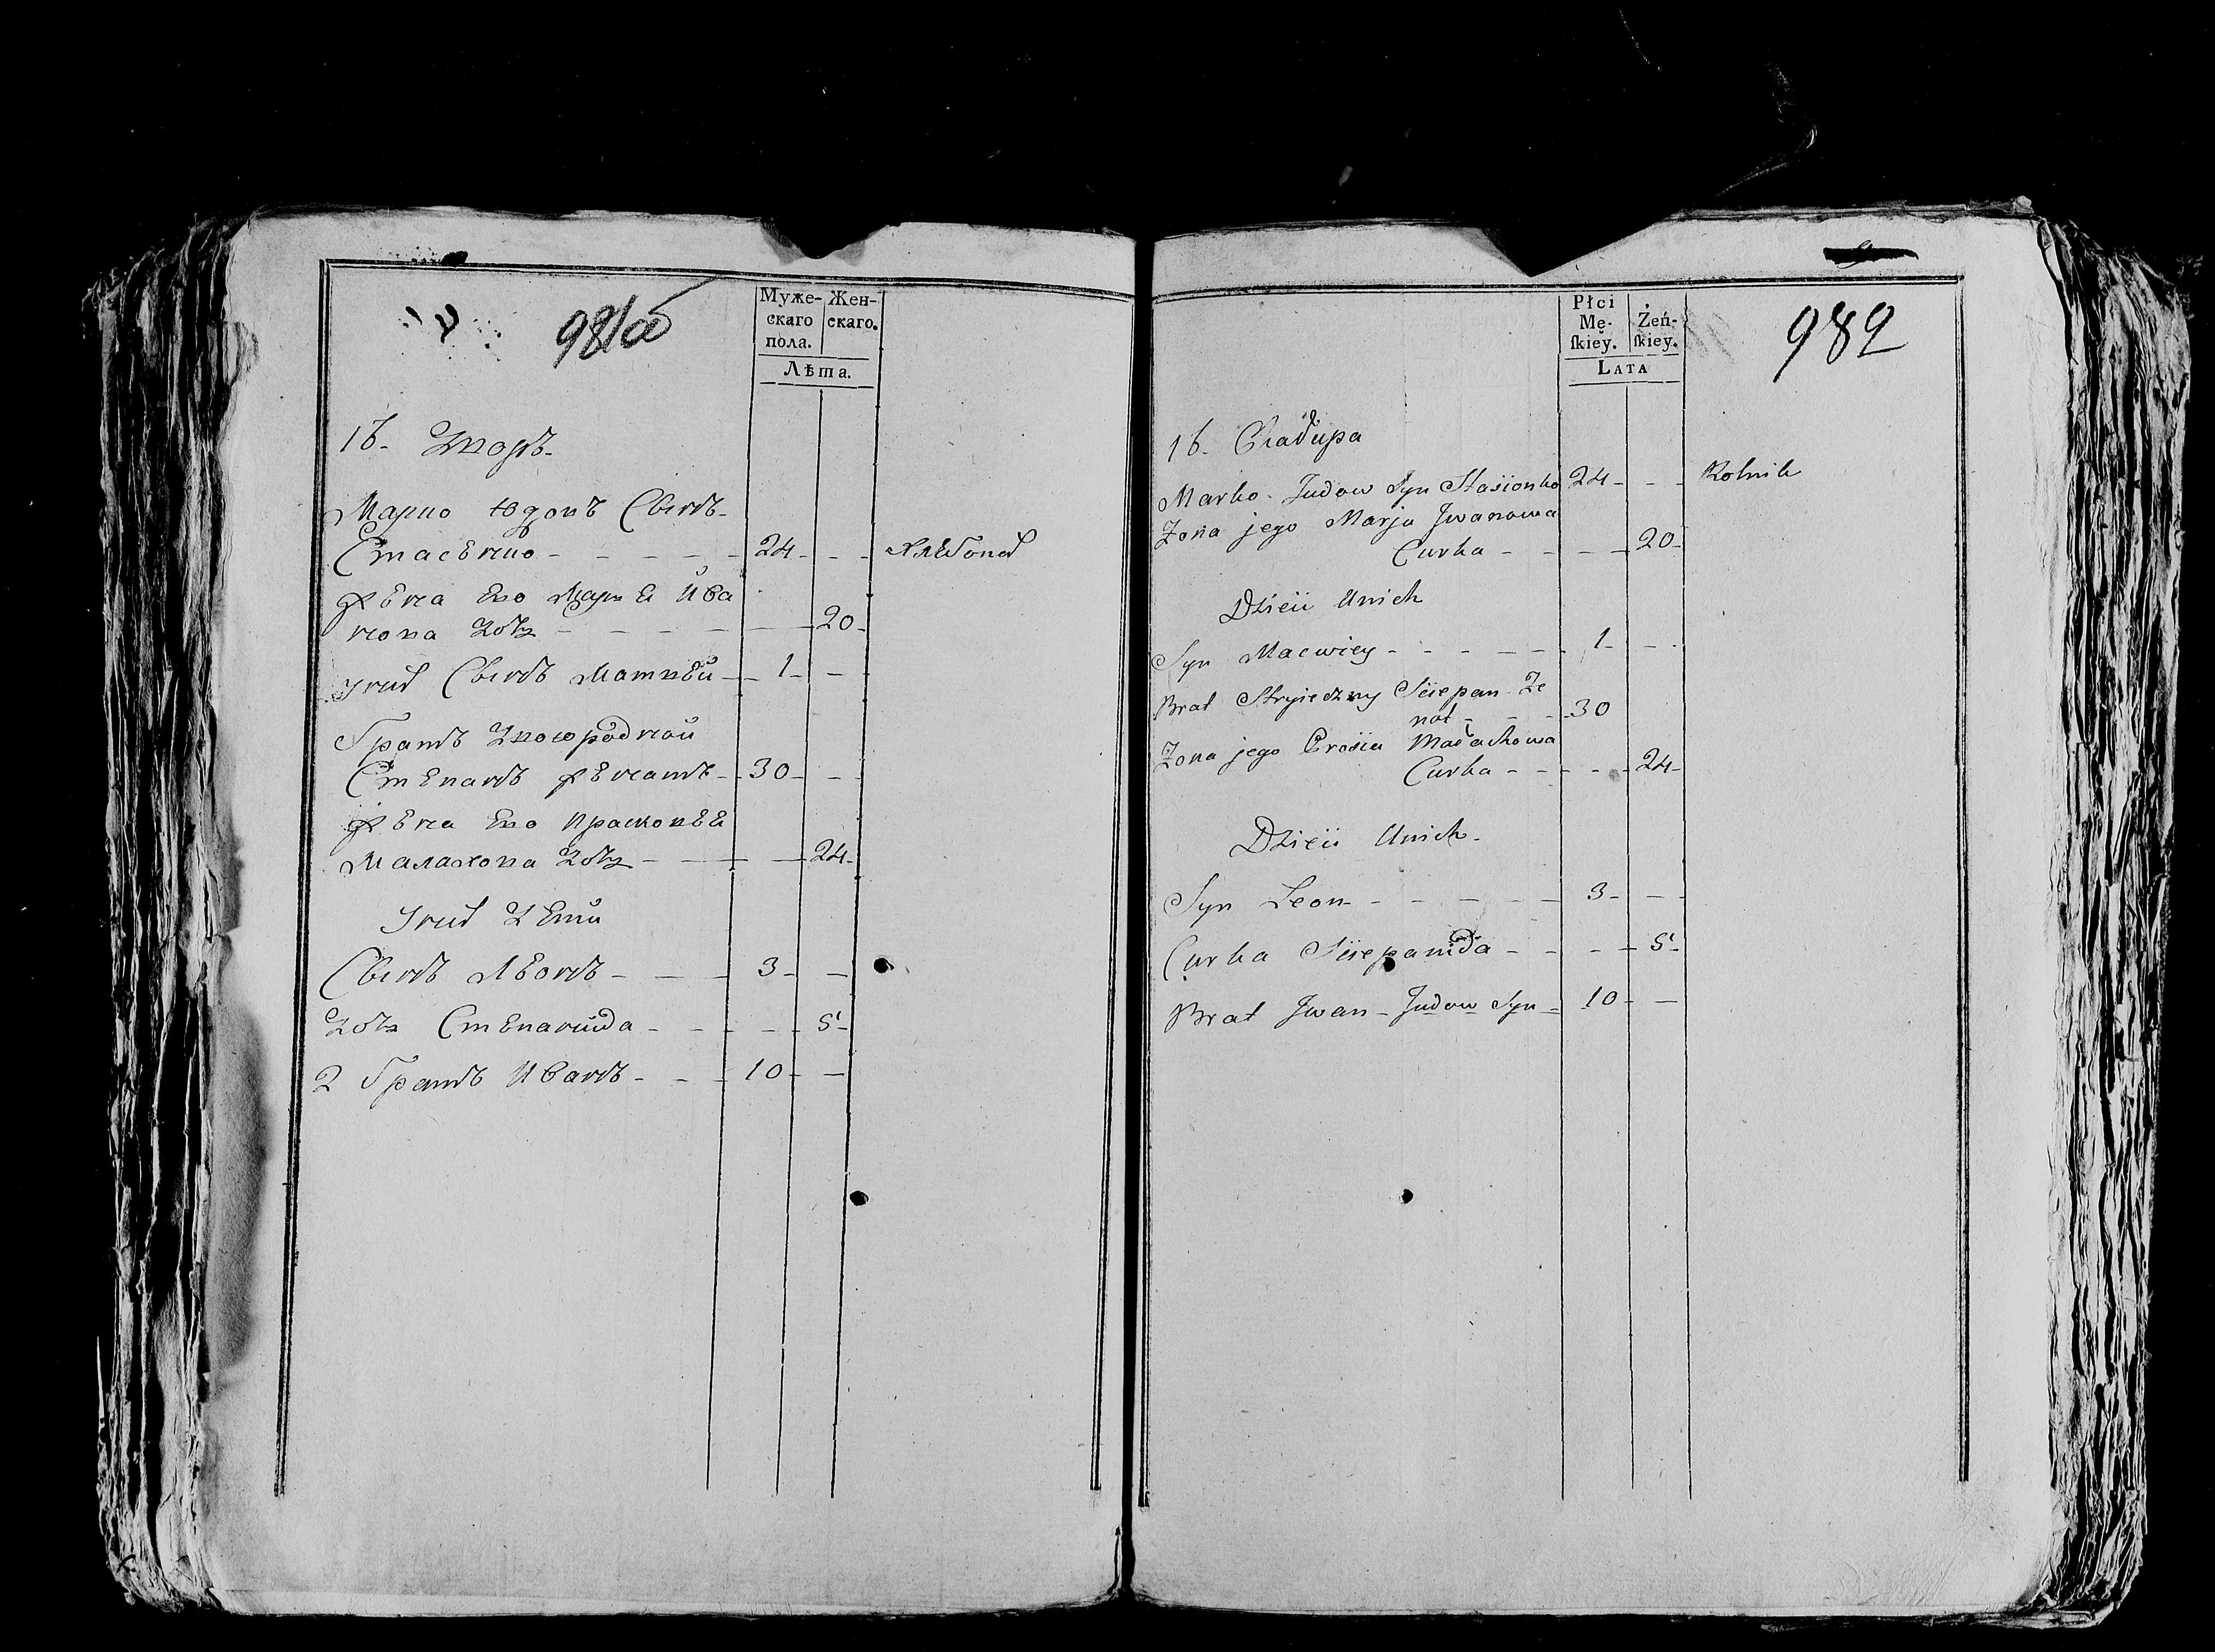 981об
Муже-
скаго
пола.
Жен-
скаго.
Лѣта.
16- Дворъ-
Марко Юдовъ Сынъ-
Стасенко - 24 - - Хлебопа
Жена Его Марья Ива
нова Дочь - 20 -
У них Сынъ Матвей - 1 - -
Братъ Двоюродной
Степанъ Женатъ - 30 - -
Жена Его Прасковея
Малахова Дочь - 24 -
У них Дети
Сынъ Леонъ - 3 - -
Дочь Степанида - 5 -
2 Братъ Иванъ - 10 - -
982
Płci
Mę-
ſkiey.
Żeń-
ſkiey.
LATA
16-
Marko Judow Syn Stasionko 24 - - Rolnik
Zona jego Marja Jwanowa
Curka - 20 -
Dzieci Unich
Syn Macwiey - 1 - -
Brat Stryieczny Sciepan Że
nat - 30
Zona jego Małachowa
Curka - 24 -
Dzieci Unich -
Syn Leon - 3 - -
Curka Sciepanida - 5 -
Brat Jwan - Judow Syn - 10 - -